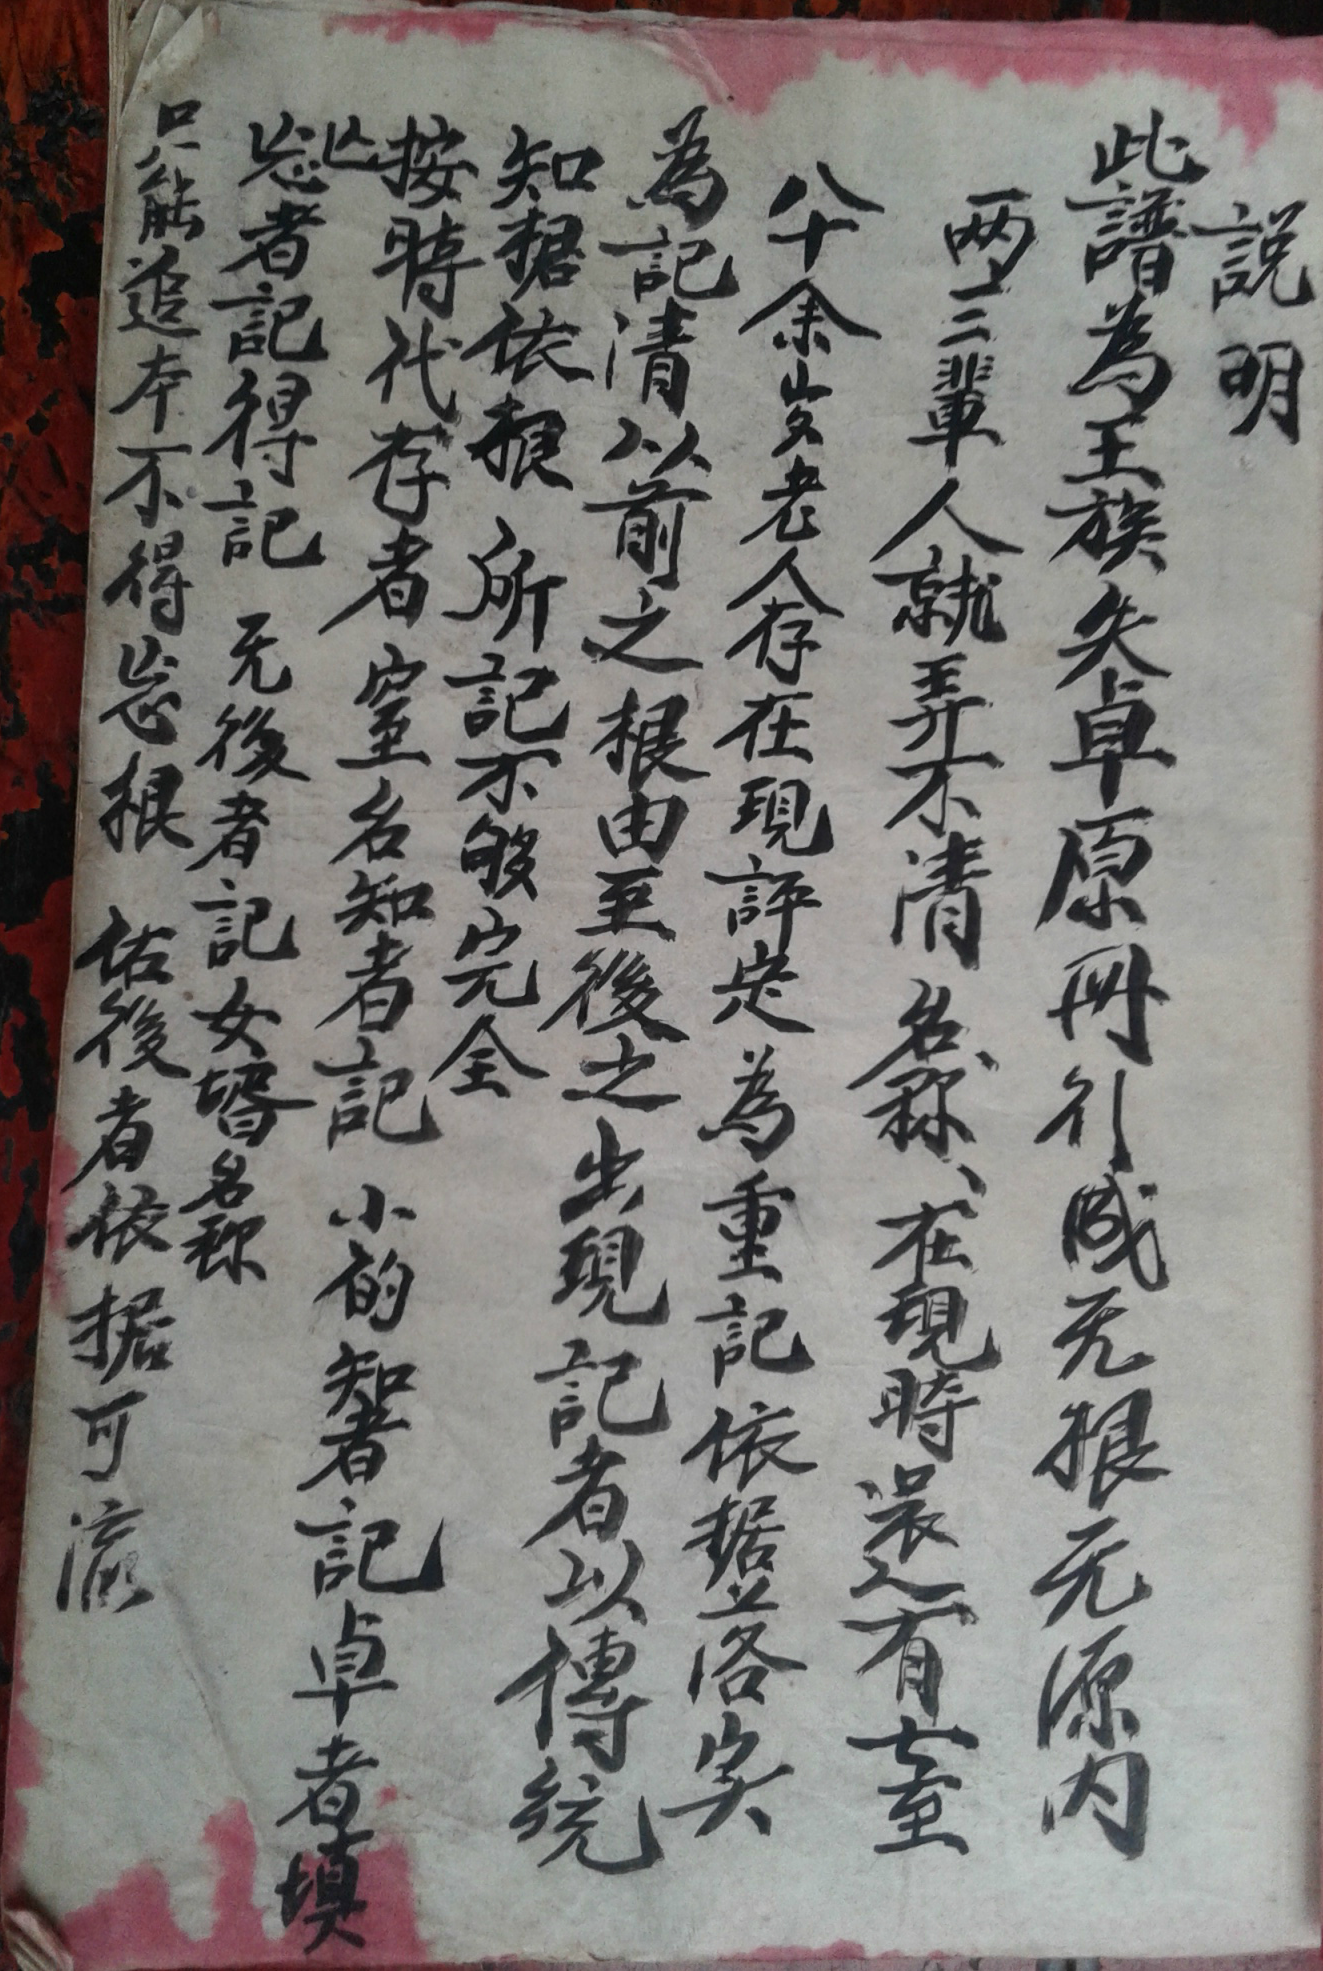 説明
此譜為王族失卓原冊引成无根无源内
两三輩人就弄不清名称、在現時还有七至
八十余岁老人存在現評定為重記依据並落实
為記清以前之根由至後之出現記者以傳統
知据依根所記不够完全
按時代存者室名知者記小的知者記卓者填
忘者記得記无後者記女壻名称
只能追本不得忘根佑後者依据可流